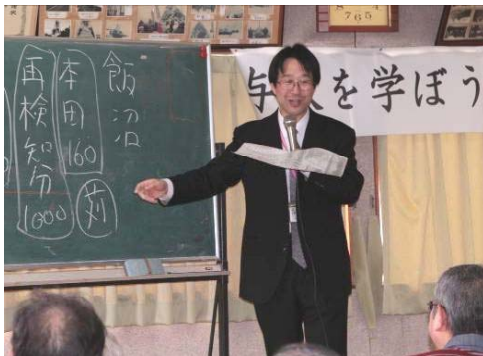 飯沼
本田160
苅
再検知分1000
を学ぼう
765